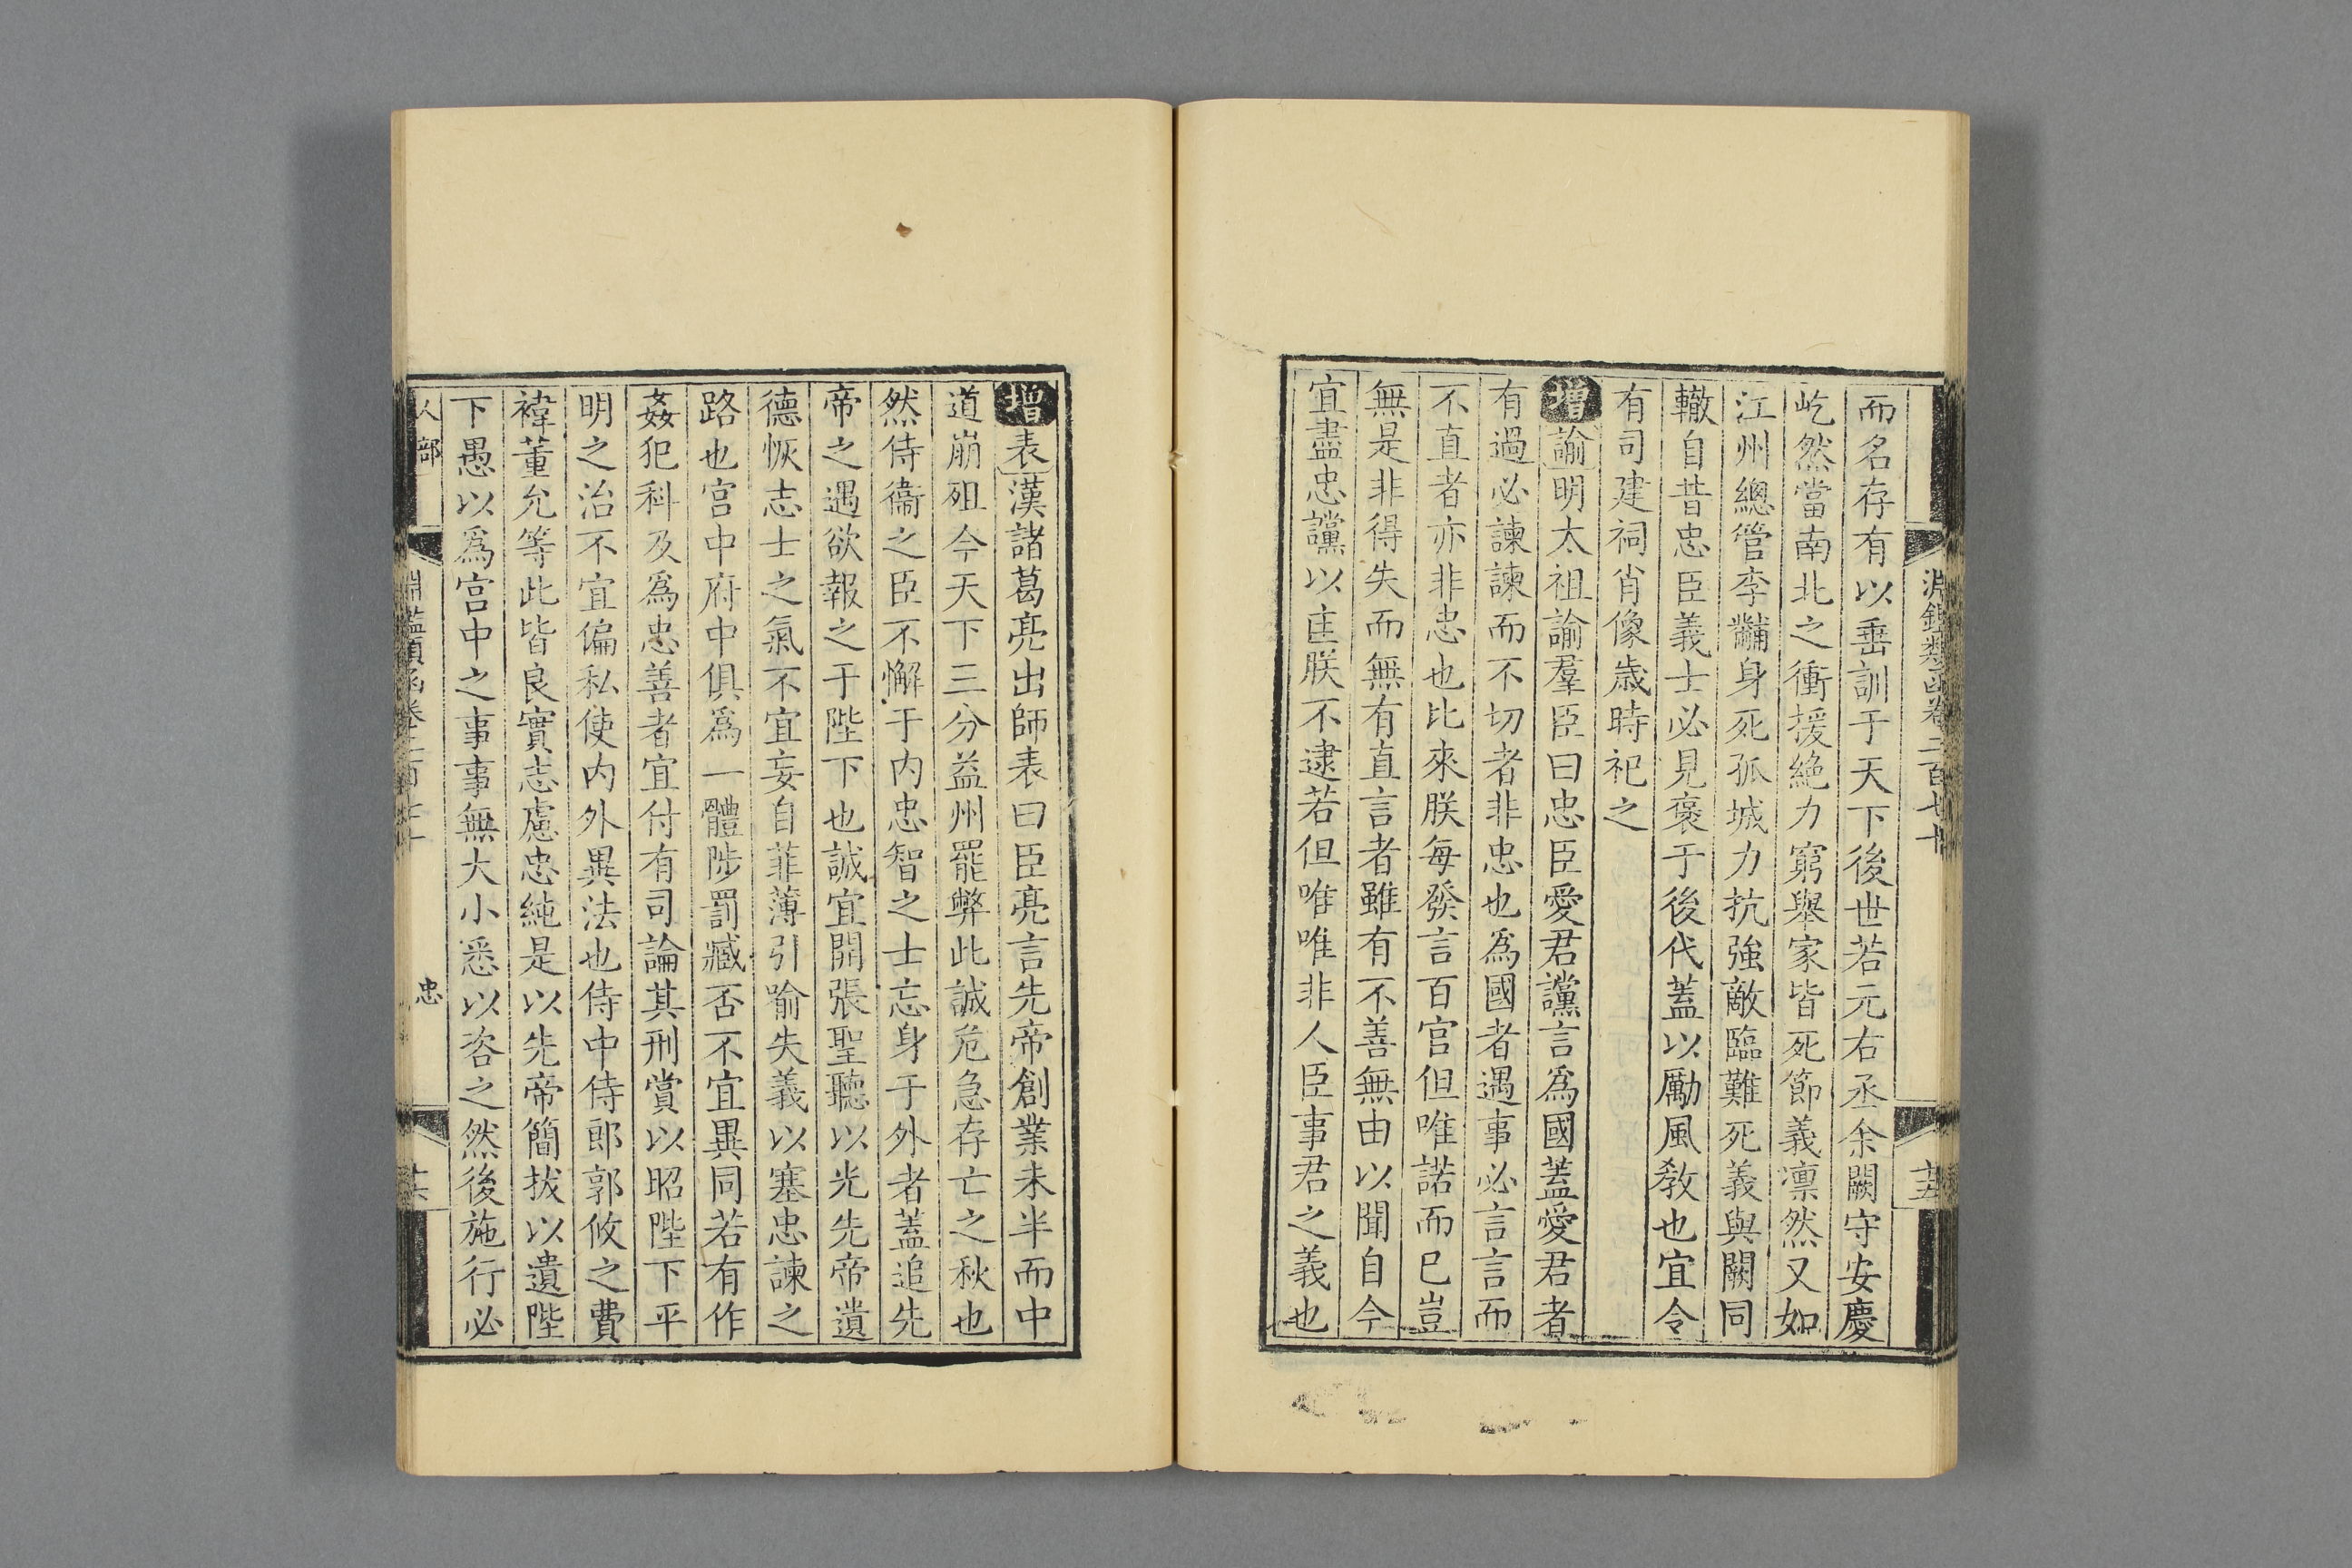 淵鑑類函卷二百七十
而名存有以垂訓于天下後世若元右丞余闕守安慶
屹然當南北之衝援絶力窮舉家皆死節義凛然又如
江州總管李黼身死孤城力抗強敵臨難死義與闕同
轍自昔忠臣義士必見褒于後代蓋以勵風教也宜令
有司建祠肖像歳時祀之
增諭明太祖諭羣臣曰忠臣愛君讜言爲國蓋愛君者
有過必諫諫而不切者非忠也爲國者遇事必言言而
不直者亦非忠也比來朕每發言百官但唯諾而已豈
無是非得失而無有直言者雖有不善無由以聞自今
宜盡忠讜以匡朕不逮若但唯唯非人臣事君之義也
增表漢諸葛亮出師表曰臣亮言先帝創業未半而中
道崩殂今天下三分益州罷弊此誠危急存亡之秋也
然侍衞之臣不懈于内忠智之士忘身于外者蓋追先
帝之遇欲報之于陛下也誠宜開張聖聽以光先帝遺
德恢志士之氣不宜妄自菲薄引喻失義以塞忠諫之
路也宫中府中俱爲一體陟罰臧否不宜異同若有作
姦犯科及爲忠善者宜付有司論其刑賞以昭陛下平
明之治不宜偏私使内外異法也侍中侍郎郭攸之費
褘董允等此皆良實志慮忠純是以先帝簡拔以遺陛
下愚以爲宫中之事事無大小悉以咨之然後施行必
人部 淵鑑類函卷二百七十 忠